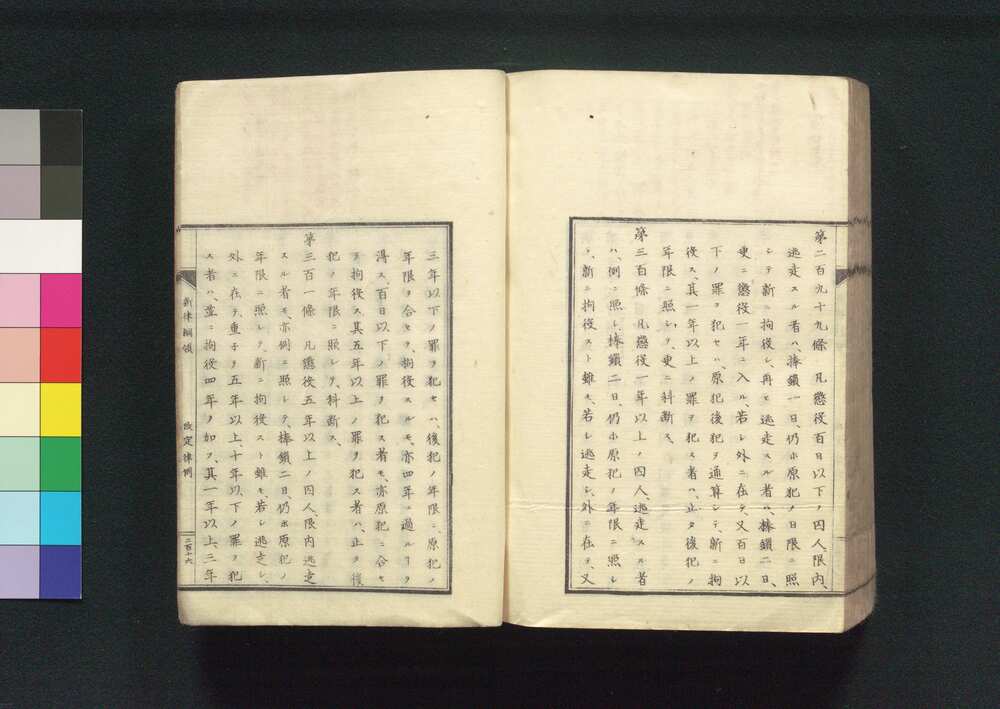 第二百九十九條　凡懲役百日以下ノ囚人、限内、
逃走スル者ハ、捧鎖一日、仍ホ原犯ノ日限ニ照
シテ新ニ拘役シ、再ヒ逃走スル者ハ、捧鎖二日、
更ニ懲役一年ニ入ル、若シ外ニ在テ、又百日以
下ノ罪ヲ犯セハ、原犯後犯ヲ通算シテ、新ニ拘
役ス、其一年以上ノ罪ヲ犯ス者ハ、止タ後犯ノ
年限ニ照シ、更ニ科斷ス、
第三百條　凡懲役一年以上ノ囚人、逃走スル者
ハ、例ニ照シ、捧鎖二日、仍ホ原犯ノ年限ニ照シ
テ、新ニ拘役スト雖モ、若シ逃走シ、外ニ在テ、又
三年以下ノ罪ヲ犯セハ、後犯ノ年限ニ、原犯ノ
年限ヲ合セテ、拘役スルモ、亦四年ニ過ルヿヲ
得ス、百日以下ノ罪ヲ犯ス者モ、亦原犯ニ合セ
テ拘役ス其五年以上ノ罪ヲ犯ス者ハ、止タ後
犯ノ年限ニ照シテ、科斷ス、
第三百一條　凡懲役五年以上ノ囚人、限内逃走
スル者モ、亦例ニ照シテ、捧鎖二日仍ホ原犯ノ
年限ニ照シテ、新ニ拘役スト雖モ、若シ逃走シ、
外ニ在テ、重子テ五年以上、十年以下ノ罪ヲ犯
ス者ハ、並ニ拘役四年ヲ加フ、其一年以上、三年
新律綱領　改定律例　二百十六